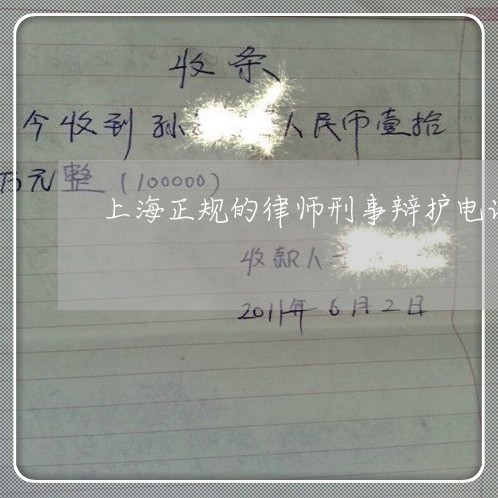 收条
今收到孙 人民币壹拾
万元整(100000)
上海正规的律师刑事辩护电
收款人
2011年6月2日